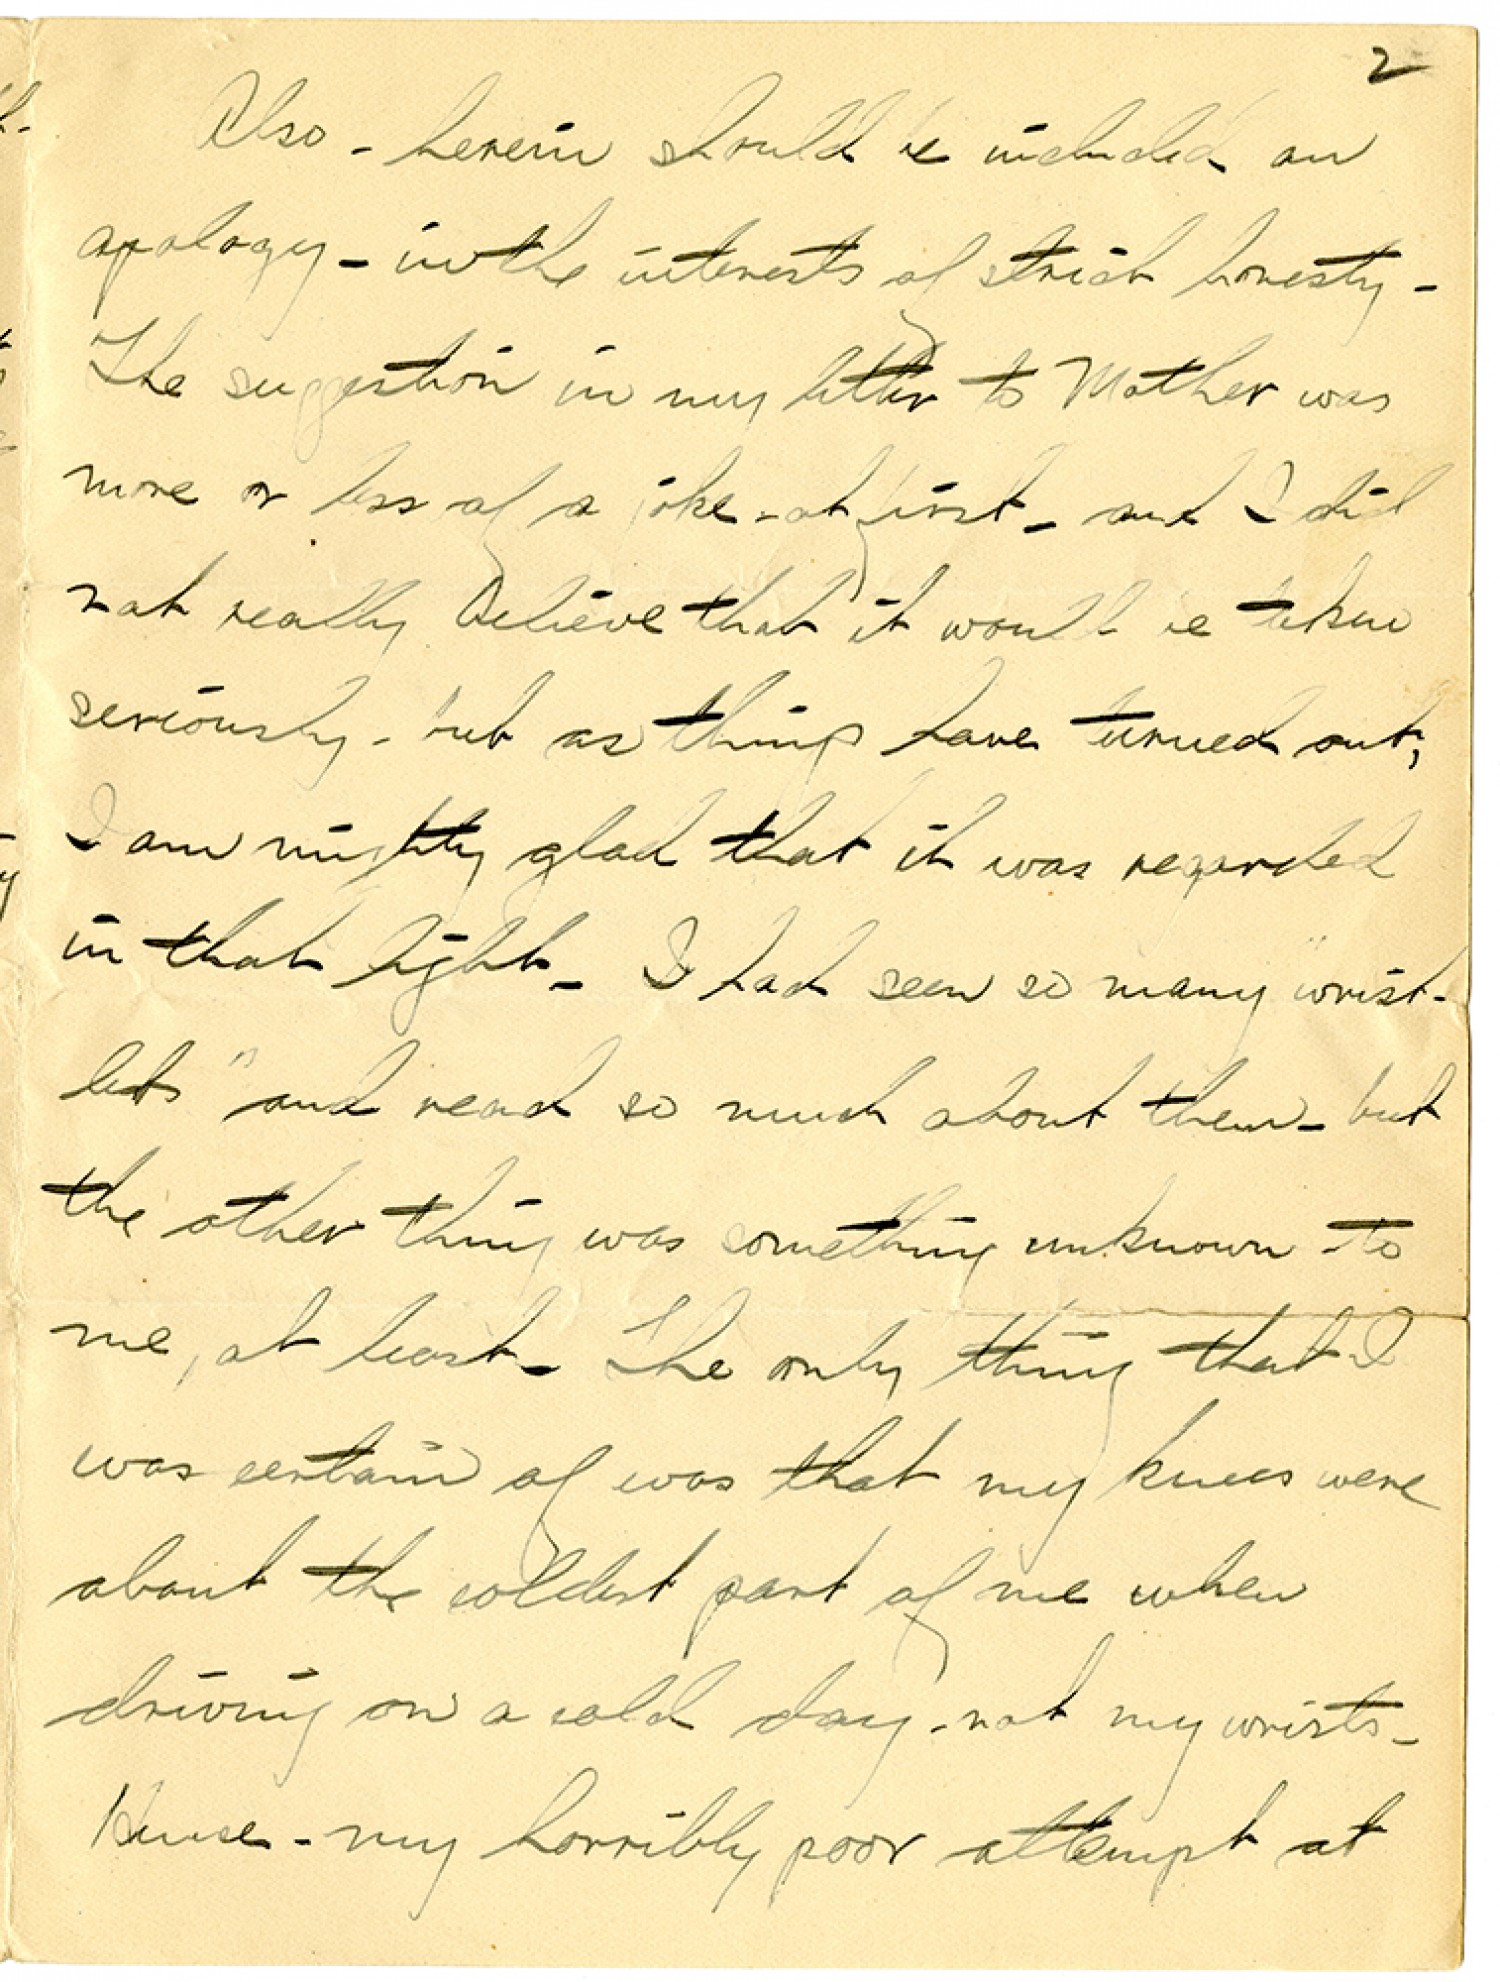 2
Also - herein should be included an
apology - in the interests of strict honesty -
The suggestion in my letter to Mother was
more or less of a joke - at first - and I did
not really believe that it would be taken
seriously - but as things have turned out,
I am mighty glad that it was regarded
in that light - I had seen so many "wrist-
lets" and read so much about them - but
the other thing was something unknown to
me, at least - The only thing that I
was certain of was that my knees were
about the coldest part of me when
driving on a cold day - not my wrists -
Hence - my horribly poor attempt at